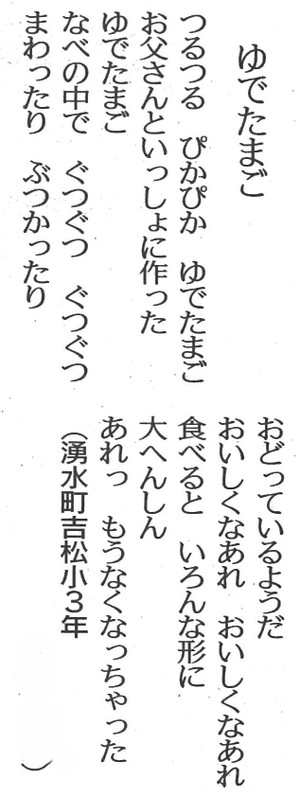 ゆでたまご
つるつる　ぴかぴか　ゆでたまご
お父さんといっしょに作った
ゆでたまご
なべの中で　ぐつぐつ　ぐつぐつ
まわったり　ぶつかったり
おどっているようだ
おいしくなあれ　おいしくなあれ
食べると　いろんな形に
大へんしん
あれっ　もうなくなっちゃった
（湧水町吉松小３年　　　　　）